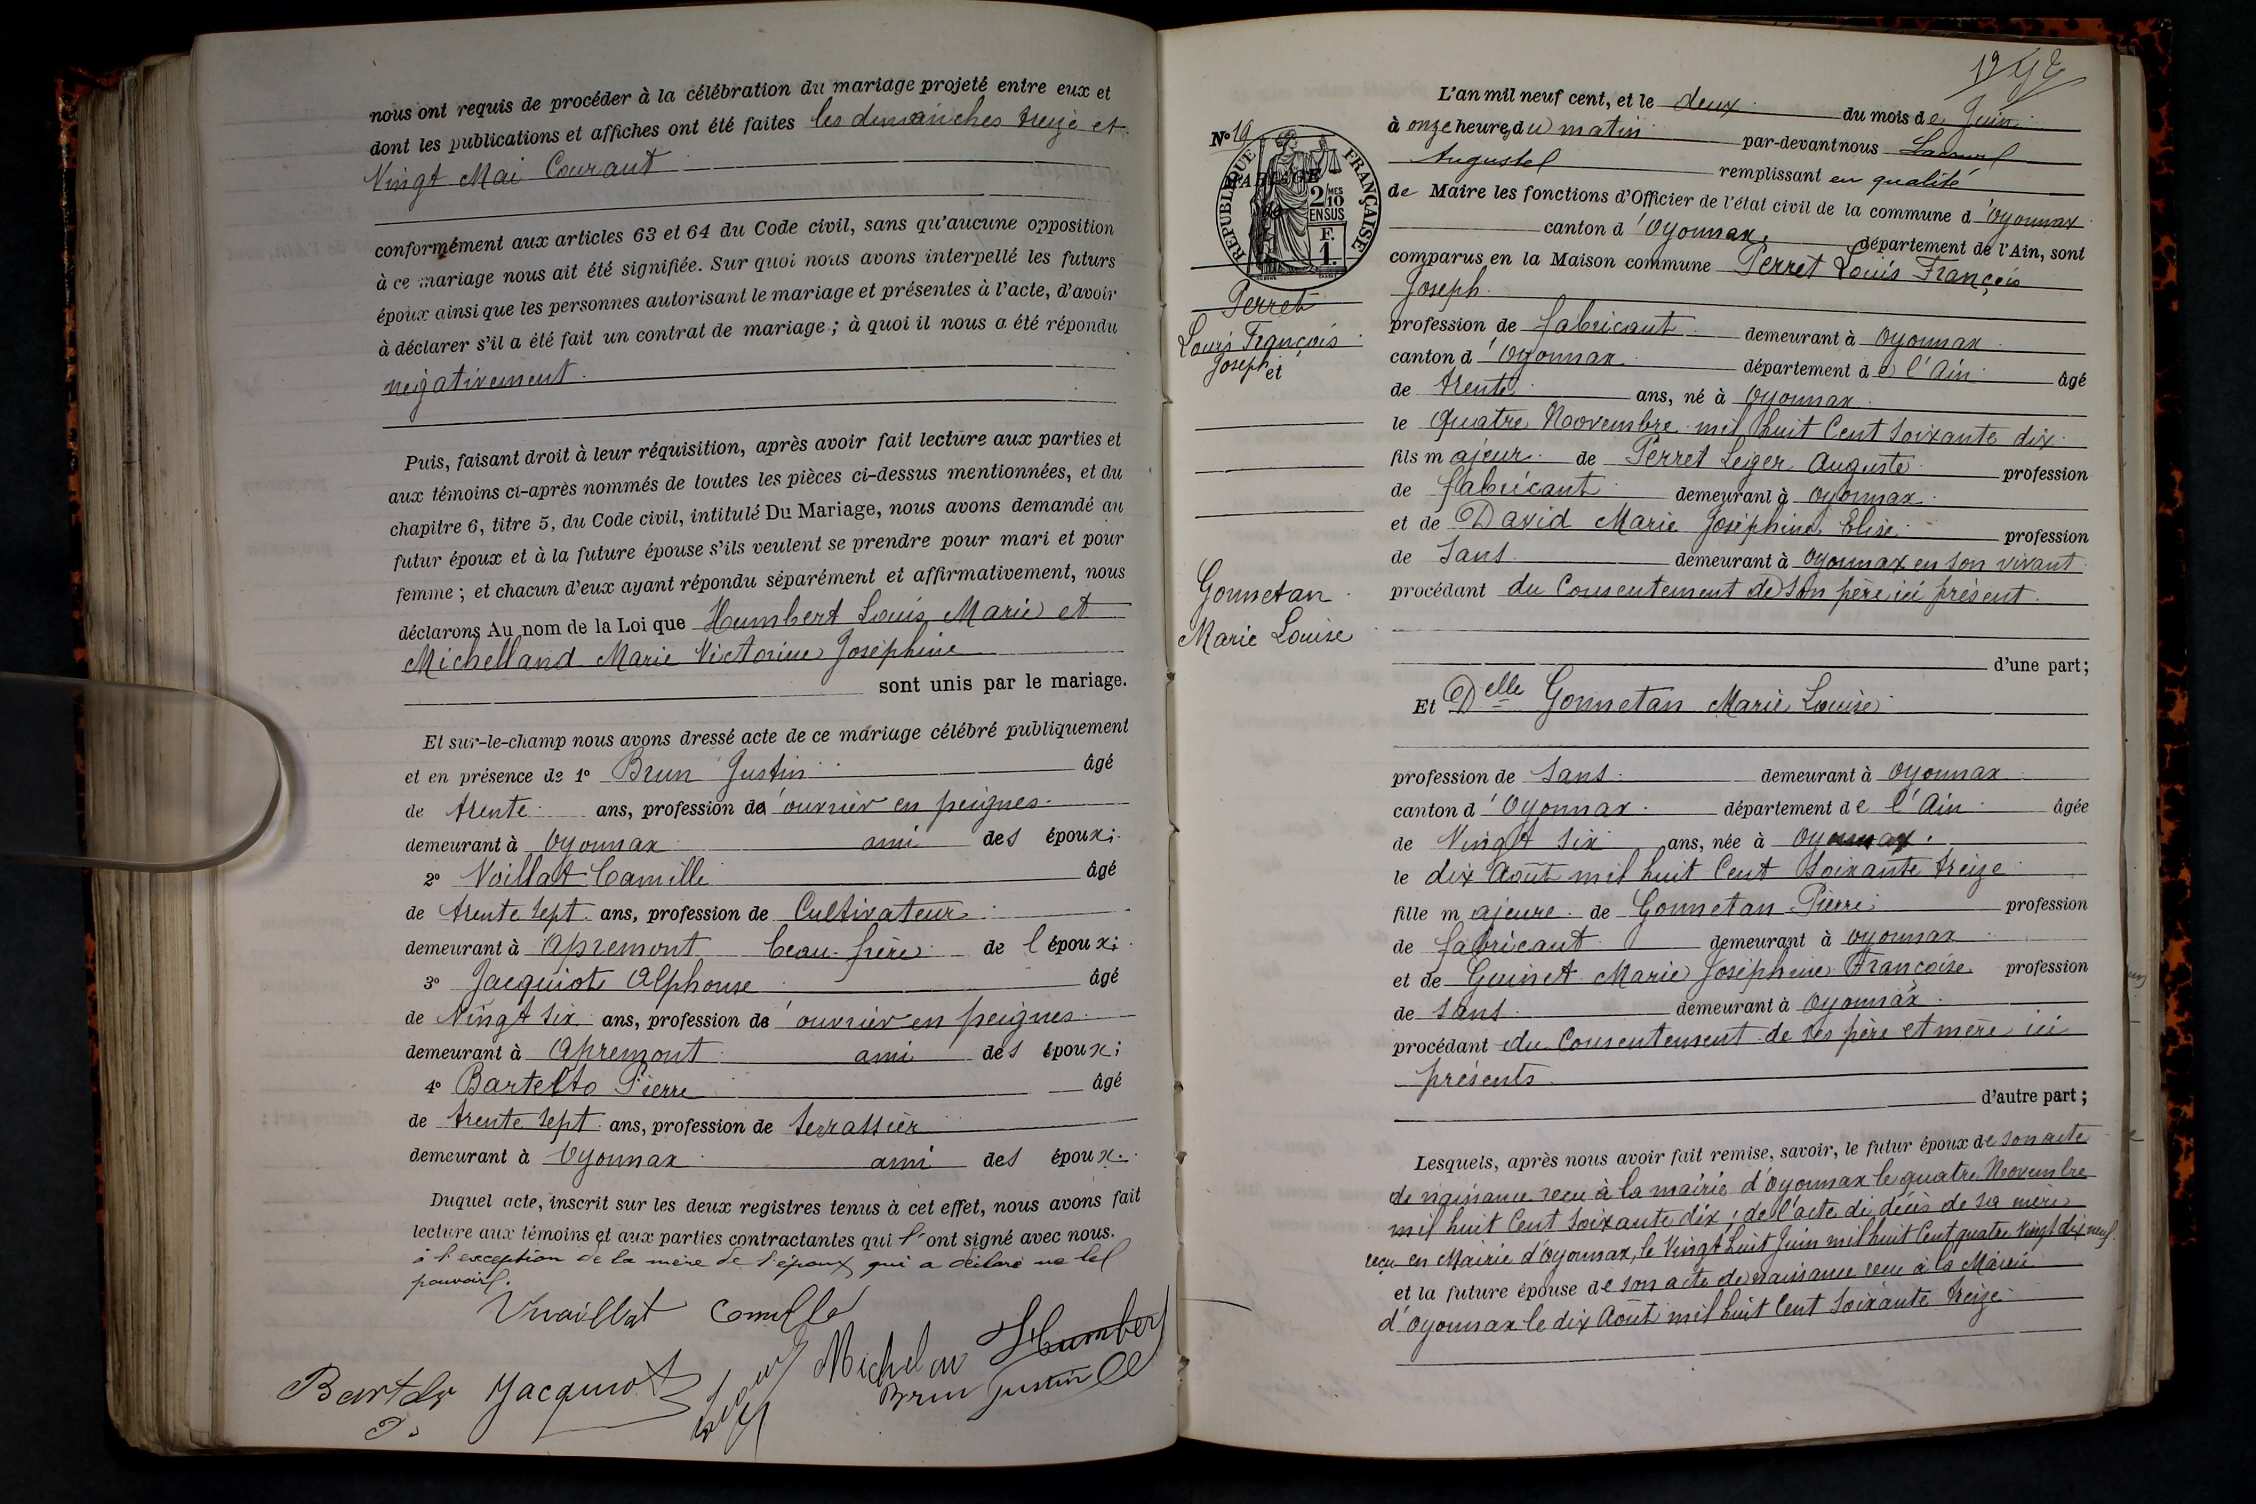 nous ont requis de procéder à la célébration du mariage projeté entre eux et
dont les publications et affiches ont été faites les dimanches treize et
Vingt Mai Courant
conformément aux articles 63 et 64 du Code civil, sans qu'aucune opposition
à ce mariage nous ait été signifiée. Sur quoi nous avons interpellé les futurs
époux ainsi que les personnes autorisant le mariage et présentes à l'acte, d'avoir
à déclarer s'il a été fait un contrat de mariage ; à quoi il nous a été répondu
négativement
Puis, faisant droit à leur réquisition, après avoir fait lecture aux parties et
aux témoins ci-après nommés de toutes les pièces ci-dessus mentionnées, et du
chapitre 6, titre 5, du Code civil, intitulé Du Mariage, nous avons demandé au
futur époux et à la future épouse s'ils veulent se prendre pour mari et pour
femme ; et chacun d'eux ayant répondu séparément et affirmativement, nous
déclarons Au nom de la Loi que Humbert Louis Marie et
Michelland Marie Victorine Joséphine
sont unis par le mariage.
Et sur-le-champ nous avons dressé acte de ce mariage célébré publiquement
et en présence de 1° Brun Justin âgé
de trente ans, profession d'ouvrier en peignes
demeurant à Oyonnax ami des époux ;
2° Voillat Camille âgé
de trente sept ans, profession de Cultivateur
demeurant à Apremont beau-frère de l'époux ;
3° Jacquiot Alphonse âgé
de Vingt six ans, profession d'ouvrier en peignes
demeurant à Apremont ami des époux ;
4° Bartelto Pierre âgé
de trente sept ans, profession de terrassier
demeurant à Oyonnax ami des époux.
Duquel acte, inscrit sur les deux registres tenus à cet effet, nous avons fait
lecture aux témoins et aux parties contractantes qui l'ont signé avec nous.
à l'exception de la mère de l'époux qui a déclaré ne le
pouvoir.
Vuaillat Camille
Michelan Humbert
Jacquiot
Brun Justin
N° 19
RÉPUBLIQUE FRANÇAISE
2/10
EN SUS
F.
1.
Perret
Louis François
Joseph et
Gonnetan
Marie Louise
L'an mil neuf cent, et le deux du mois de Juin
à onze heures du matin par-devant nous
Auguste remplissant en qualité
de Maire les fonctions d'Officier de l'état civil de la commune d'Oyonnax
canton d'Oyonnax, département de l'Ain, sont
comparus en la Maison commune Perret Louis François
Joseph
profession de fabricant demeurant à Oyonnax
canton d'Oyonnax département de l'Ain âgé
de trente ans, né à Oyonnax
le quatre Novembre mil huit Cent Soixante dix
fils majeur de Perret Leger Auguste profession
de fabricant demeurant à Oyonnax
et de David Marie Joséphine Elise profession
de Sans demeurant à Oyonnax en son vivant
procédant du Consentement de son père ici présent
d'une part ;
Et Delle Gonnetan Marie Louise
profession de Sans demeurant à Oyonnax
canton d'Oyonnax département de l'Ain âgée
de Vingt six ans, née à Oyonnax
le dix Août mil huit Cent Soixante treize
fille majeure de Gonnetan Pierre profession
de fabricant demeurant à Oyonnax
et de Guinet Marie Joséphine Françoise profession
de Sans demeurant à Oyonnax
procédant du Consentement de ses père et mère ici
présents
d'autre part ;
Lesquels, après nous avoir fait remise, savoir, le futur époux de son acte
de naissance reçu à la mairie d'Oyonnax le quatre Novembre
mil huit Cent Soixante dix ; de l'acte de décès de sa mère
reçu en Mairie d'Oyonnax, le Vingt huit Juin mil huit Cent quatre Vingt dix neuf
et la future épouse de son acte de naissance reçu à la Mairie
d'Oyonnax le dix Août mil huit Cent Soixante treize